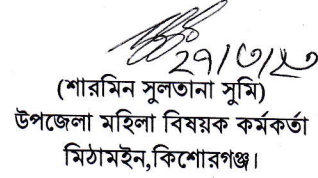 ২৭/৩/২৩
(শারমিন সুলতানা সুমি)
উপজেলা মহিলা বিষয়ক কর্মকর্তা
মিঠামইন,কিশোরগঞ্জ।